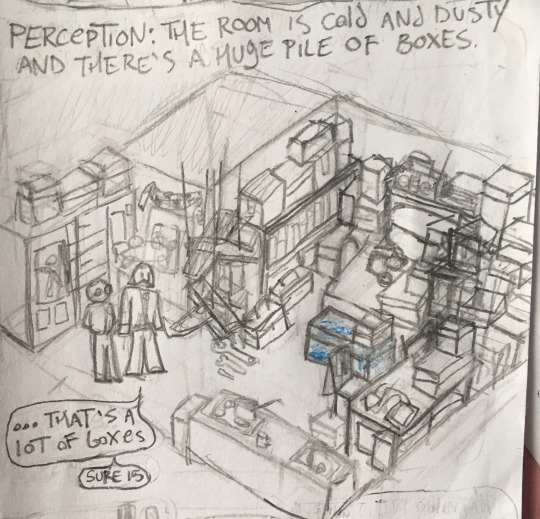 PERCEPTION: THE ROOM IS COLD AND DUSTY
AND THERE'S A HUGE PILE OF BOXES.
... THAT'S A
LOT OF BOXES
SURE IS